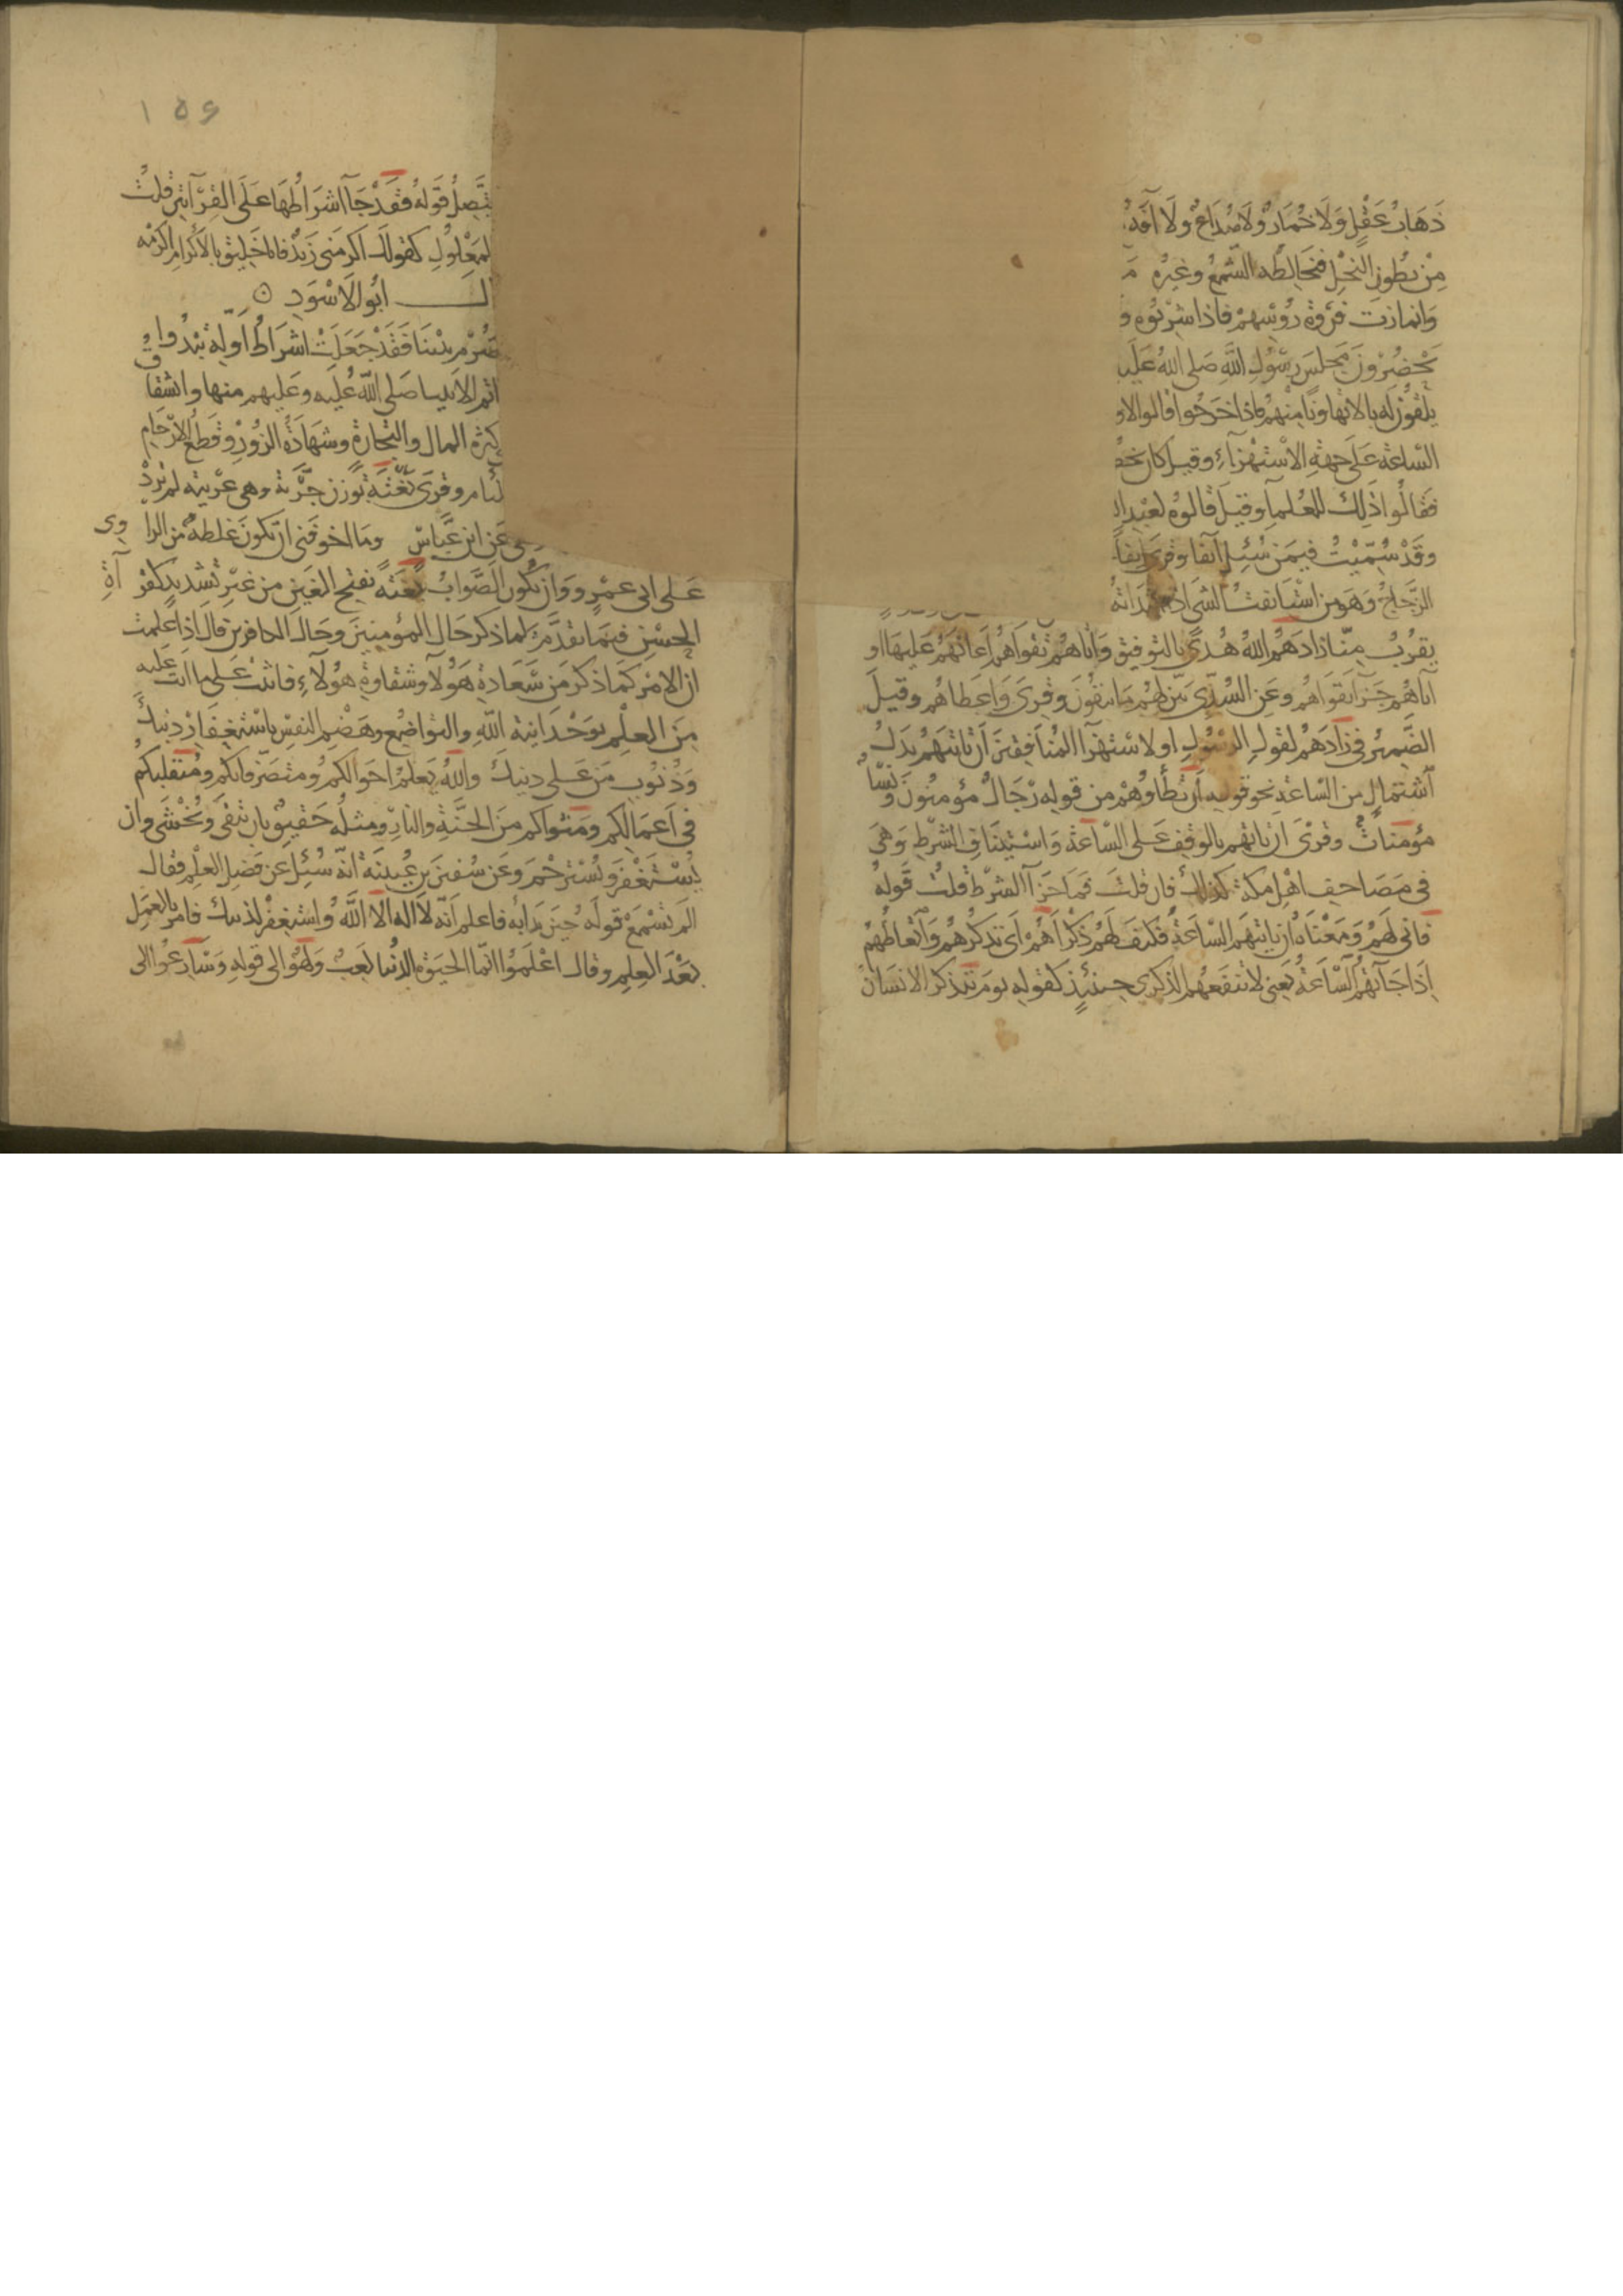 ذَهَابُ عَقْلٍ وَلَا خُمَارٌ وَلَا صُدَاعٌ ولا آفة
مِنْ بطُونِ النَحْلِ فيخالطه الشمعُ وغيرُه
وَانمازت فروة رؤسهم فاذا شربوه و
يحضُرُونَ مجلسَ رسُولِ اللهِ صلى اللهُ عَلَيه
يلقون له بالا تهاونًا منهم فاذا خرجُوا قالوا لاو
السّاعة عَلَى جهةِ الاستهزآءِ وقيل كان يخط
فقالُوا ذلك للعُلمآ وقيلَ قالوه لعبْد ا
وقدْ سُمّيْتُ فيمَن سُئِلَ آنفا وقرى انفا
الزجاجُ وَهوَ من استانفتُ الشى اذا ابتداته
يقرُبُ مِنّا زادهم اللهُ هُدًى بالتوفيق وَآتاهم تقواهم اعانهمْ عَليهَا او
آتاهُم جزآ تقواهُم وعَنِ السُدّى بيّن لهُم مَا يتقُونَ وقرِىَ وَاعطاهُم وقيلَ
الضميرُ في زادَهمُ لقولِ الرسُولِ او لاستهزآ المُنافقينَ اَنْ تاتيَهم بَدَلُ
اشتمالٍ من السّاعة نحو قوله اَنْ تطَأوهُمْ من قوله رجَالٌ مؤمنُونَ ونسآ
مؤمناتٌ وقرىَ ان تاتهم بالوقفِ عَلى السَّاعة وَاستيناف الشرْطِ وَهىَ
فى مَصَاحِف اهْل مكة كذلك فان قلتَ فما جزآ الشرْط قلتُ قَولهُ
فانى لَهُمْ وَمعْنَاهُ ان تاتيهَم السَّاعَةُ فكيف لَهُم ذكْراهُمْ اَى تذكرُهُم وَاتعاظُهُمْ
اِذَا جَآتهُم السَّاعةُ يَعنى لا تنفعُهُم الذكرى حينئذٍ كقوله يوم يتذكر الانسَان
١٥٤
يتَّصِلُ قولهُ فقدْ جَآ اشرَاطُهَا عَلَى القرآتينِ قلتُ
المعْلولِ كقولك اكرمَنى زَيدٌ فانا خليق بالاكرامِ اكرمْه
ابُو الاسْوَدِ
بالصُرْم بيْننا فقَدْ جَعلَتْ اشرَاطُ اوّلِهِ تبْدُوا
خاتم الانبيا صَلى اللهُ عليه وعَليهم منها وانشقاق
كثرة المال والتجارة وشهَادَةُ الزُورِ وقطعُ الارْحَامِ
وقرى بَغَتَّةً بوزن جَرَبَّة وهى غرْيبَة لم تردْ
عَنِ ابن عَبَّاسٍ ومَا اخوفنى ان تكونَ غلطةً من الراوى
عَلى ابى عمْرٍو وَان يكُون الصَّوابُ بَغَتَةً بفتح الغَيْن من غيرِ تشديدٍ كقرآة
الحسَنِ فيمَا تقدَّمَ لما ذكر حَال المؤمنينَ وحَال الكافرين قال اذا علمت
ان الامْر كمَا ذكر من سَعَادة هَؤلآ وشقاوةِ هؤلآءِ فاثبتْ عَلى ما انت عليه
مِنَ العلْم بوَحْدَانية اللّهِ والتواضُع وهَضْم النفسِ باسْتغفار ذنبك
وَذُنوبِ مَن عَلى دينك واللهُ يعلمُ احَوالكمُ ومتصَرّفاتكم ومُتقلبكم
فى اعمَالِكم ومَثواكم منَ الجَنَّةِ والنارِ ومثلُه حَقيقٌ بان يتَّقى وَيُخْشَى وان
يُسْتَغْفَرَ وَيُسْترحَمَ وعَن سُفيَن بن عُيينة انّه سُئل عن فضل العلْم فقال
الم تسْمعْ قولَه حينَ بدَا به فاعلم انّه لا اله الا اللّهُ واستغفرْ لذنبك فامرَ بالعمَل
بعْدَ العلِم وقال اعْلمَوُا انّما الحيَوة الدُنيا لعبٌ وَلهْوٌ الى قولهِ وَسَارعُوا الى